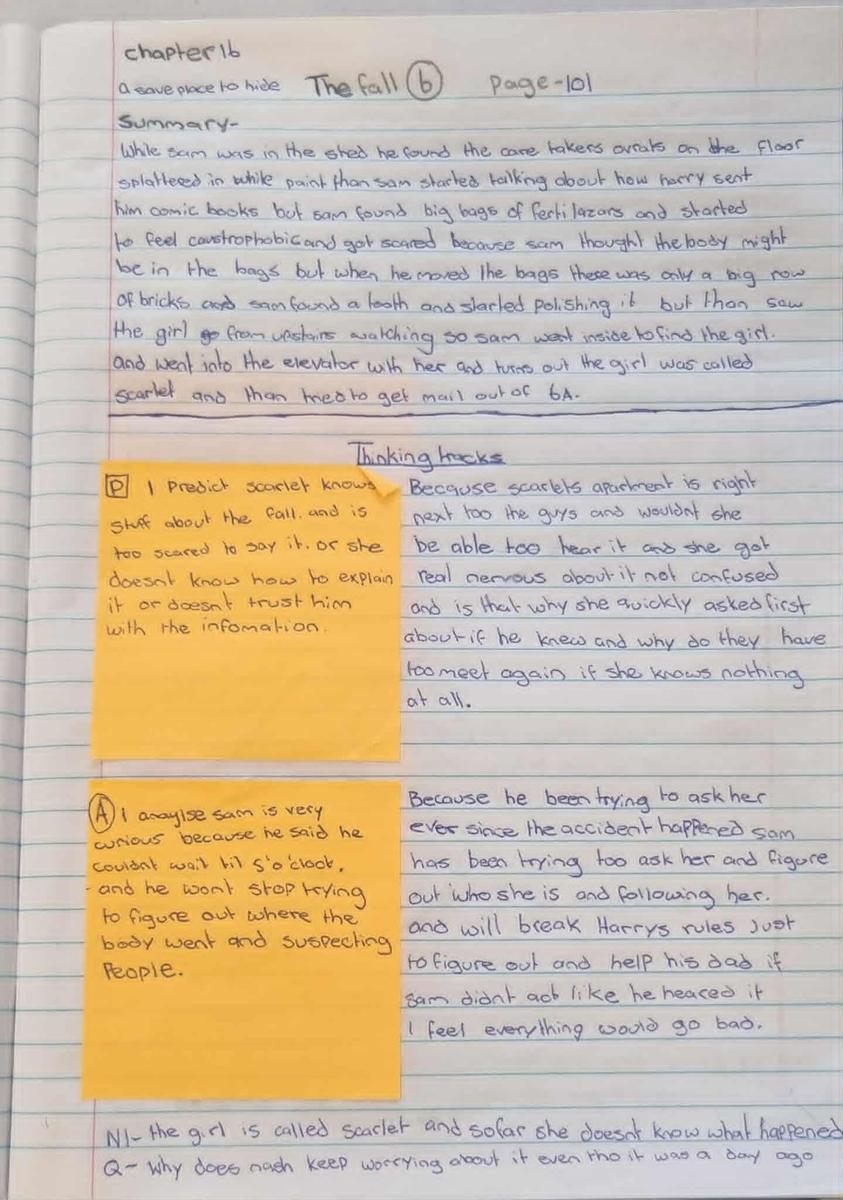 chapter 16
a save place to hide The fall 6 page-101
Summary-
While sam was in the shed he found the care takers ovrals on the floor
splattered in while paint than sam started talking about how harry sent
him comic books but sam found big bags of fertilazars and started
to feel caustrophobic and got scared because sam thought the body might
be in the bags but when he moved the bags there was only a big row
of bricks and sam found a tooth and started polishing it but than saw
the girl from upstairs watching so sam went inside to find the girl.
and went into the elevator with her and turns out the girl was called
scarlet and than tried to get mail out of 6A.
Thinking tracks
P I Predict scarlet knows
stuff about the fall. and is
too scared to say it. or she
doesnt know how to explain
it or doesnt trust him
with the infomation.
Because scarlets apartment is right
next too the guys and wouldnt she
be able too hear it and she got
real nervous about it not confused
and is that why she quickly asked first
about if he knew and why do they have
too meet again if she knows nothing
at all.
A I anaylse sam is very
curious because he said he
couldnt wait til 5'o'clock.
and he wont stop trying
to figure out where the
body went and suspecting
People.
Because he been trying to ask her
ever since the accident happened sam
has been trying too ask her and figure
out who she is and following her.
and will break Harrys rules just
to figure out and help his dad if
sam didnt act like he heared it
I feel everything would go bad.
NI- the girl is called scarlet and sofar she doesnt know what happened
Q- Why does nash keep worrying about it even tho it was a day ago